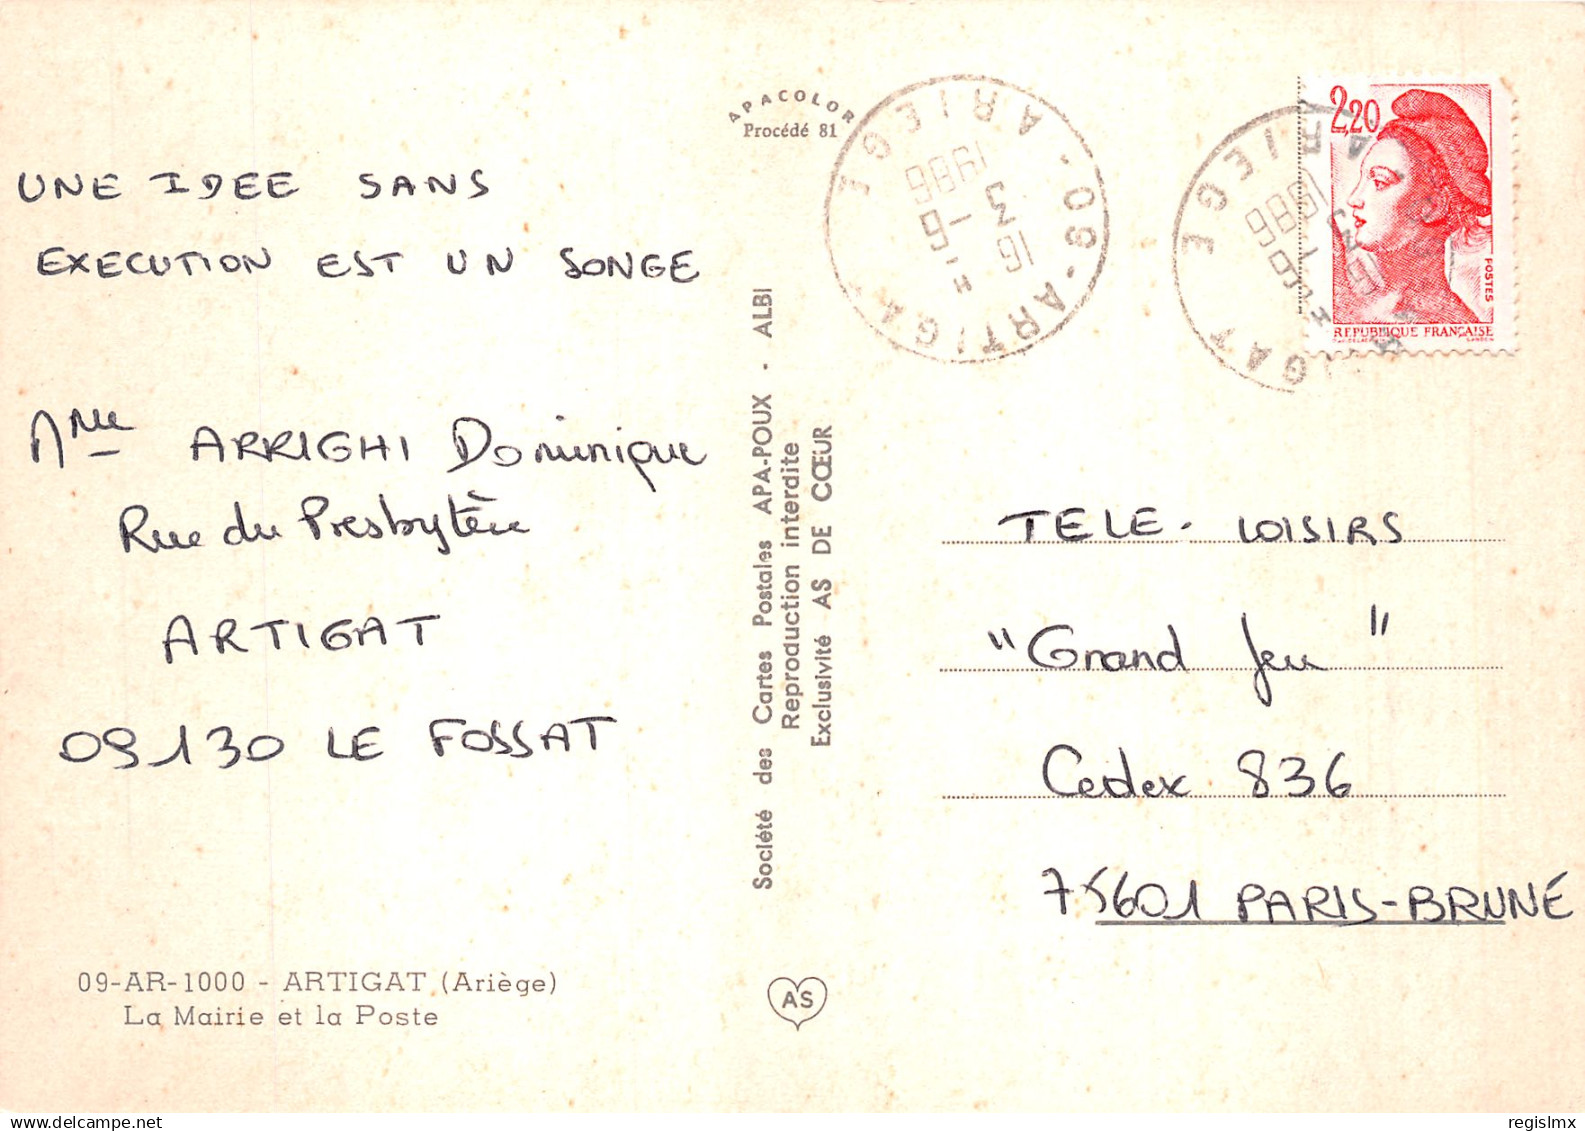 APACOLOR
Procédé 81
UNE IDEE SANS
EXECUTION EST UN SONGE
Mme ARRIGHI Dominique
Rue du Presbytère
ARTIGAT
09130 LE FOSSAT
09-AR-1000 - ARTIGAT (Ariège)
La Mairie et la Poste
Société des Cartes Postales APA-POUX - ALBI
Reproduction interdite
Exclusivité AS DE CŒUR
AS
09 - ARTIGAT - ARIEGE
16 H
-9
3
1986
ARIEGE
1986
2,20
POSTES
REPUBLIQUE FRANÇAISE
TELE-LOISIRS
"Grand Jeu"
Cedex 836
75601 PARIS-BRUNE
regislmx